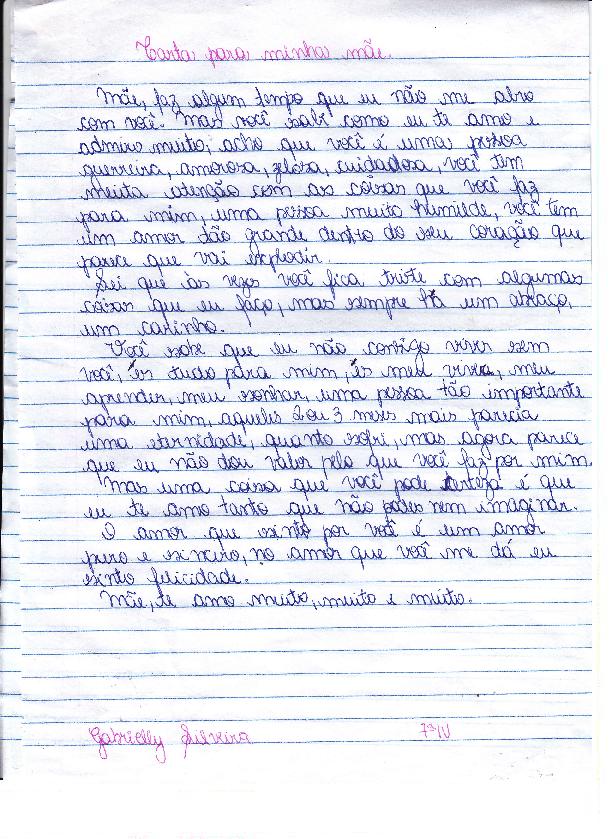 Carta para minha mãe.
Mãe, faz algum tempo que eu não me abro
com você. Mas você sabe como eu te amo e
admiro muito, acho que você é uma pessoa
guerreira, amorosa, zelosa, cuidadosa, você tem
muita atenção com as coisas que você faz
para mim, uma pessoa muito humilde, você tem
um amor tão grande dentro do seu coração que
parece que vai explodir.
Sei que às vezes você fica triste com algumas
coisas que eu faço, mas sempre há um abraço,
um carinho.
Você sabe que eu não consigo viver sem
você, és tudo para mim, és meu viver, meu
aprender, meu sonhar, uma pessoa tão importante
para mim, aqueles 2 ou 3 meses mais parecia
uma eternidade, quanto sofri, mas agora parece
que eu não dou valor pelo que você faz por mim.
Mas uma coisa que você pode certeza é que
eu te amo tanto que não podes nem imaginar.
O amor que sinto por você é um amor
puro e sincero, no amor que você me dá eu
sinto felicidade.
Mãe, te amo muito, muito e muito.
Gabrielly Silveira 7ªIV